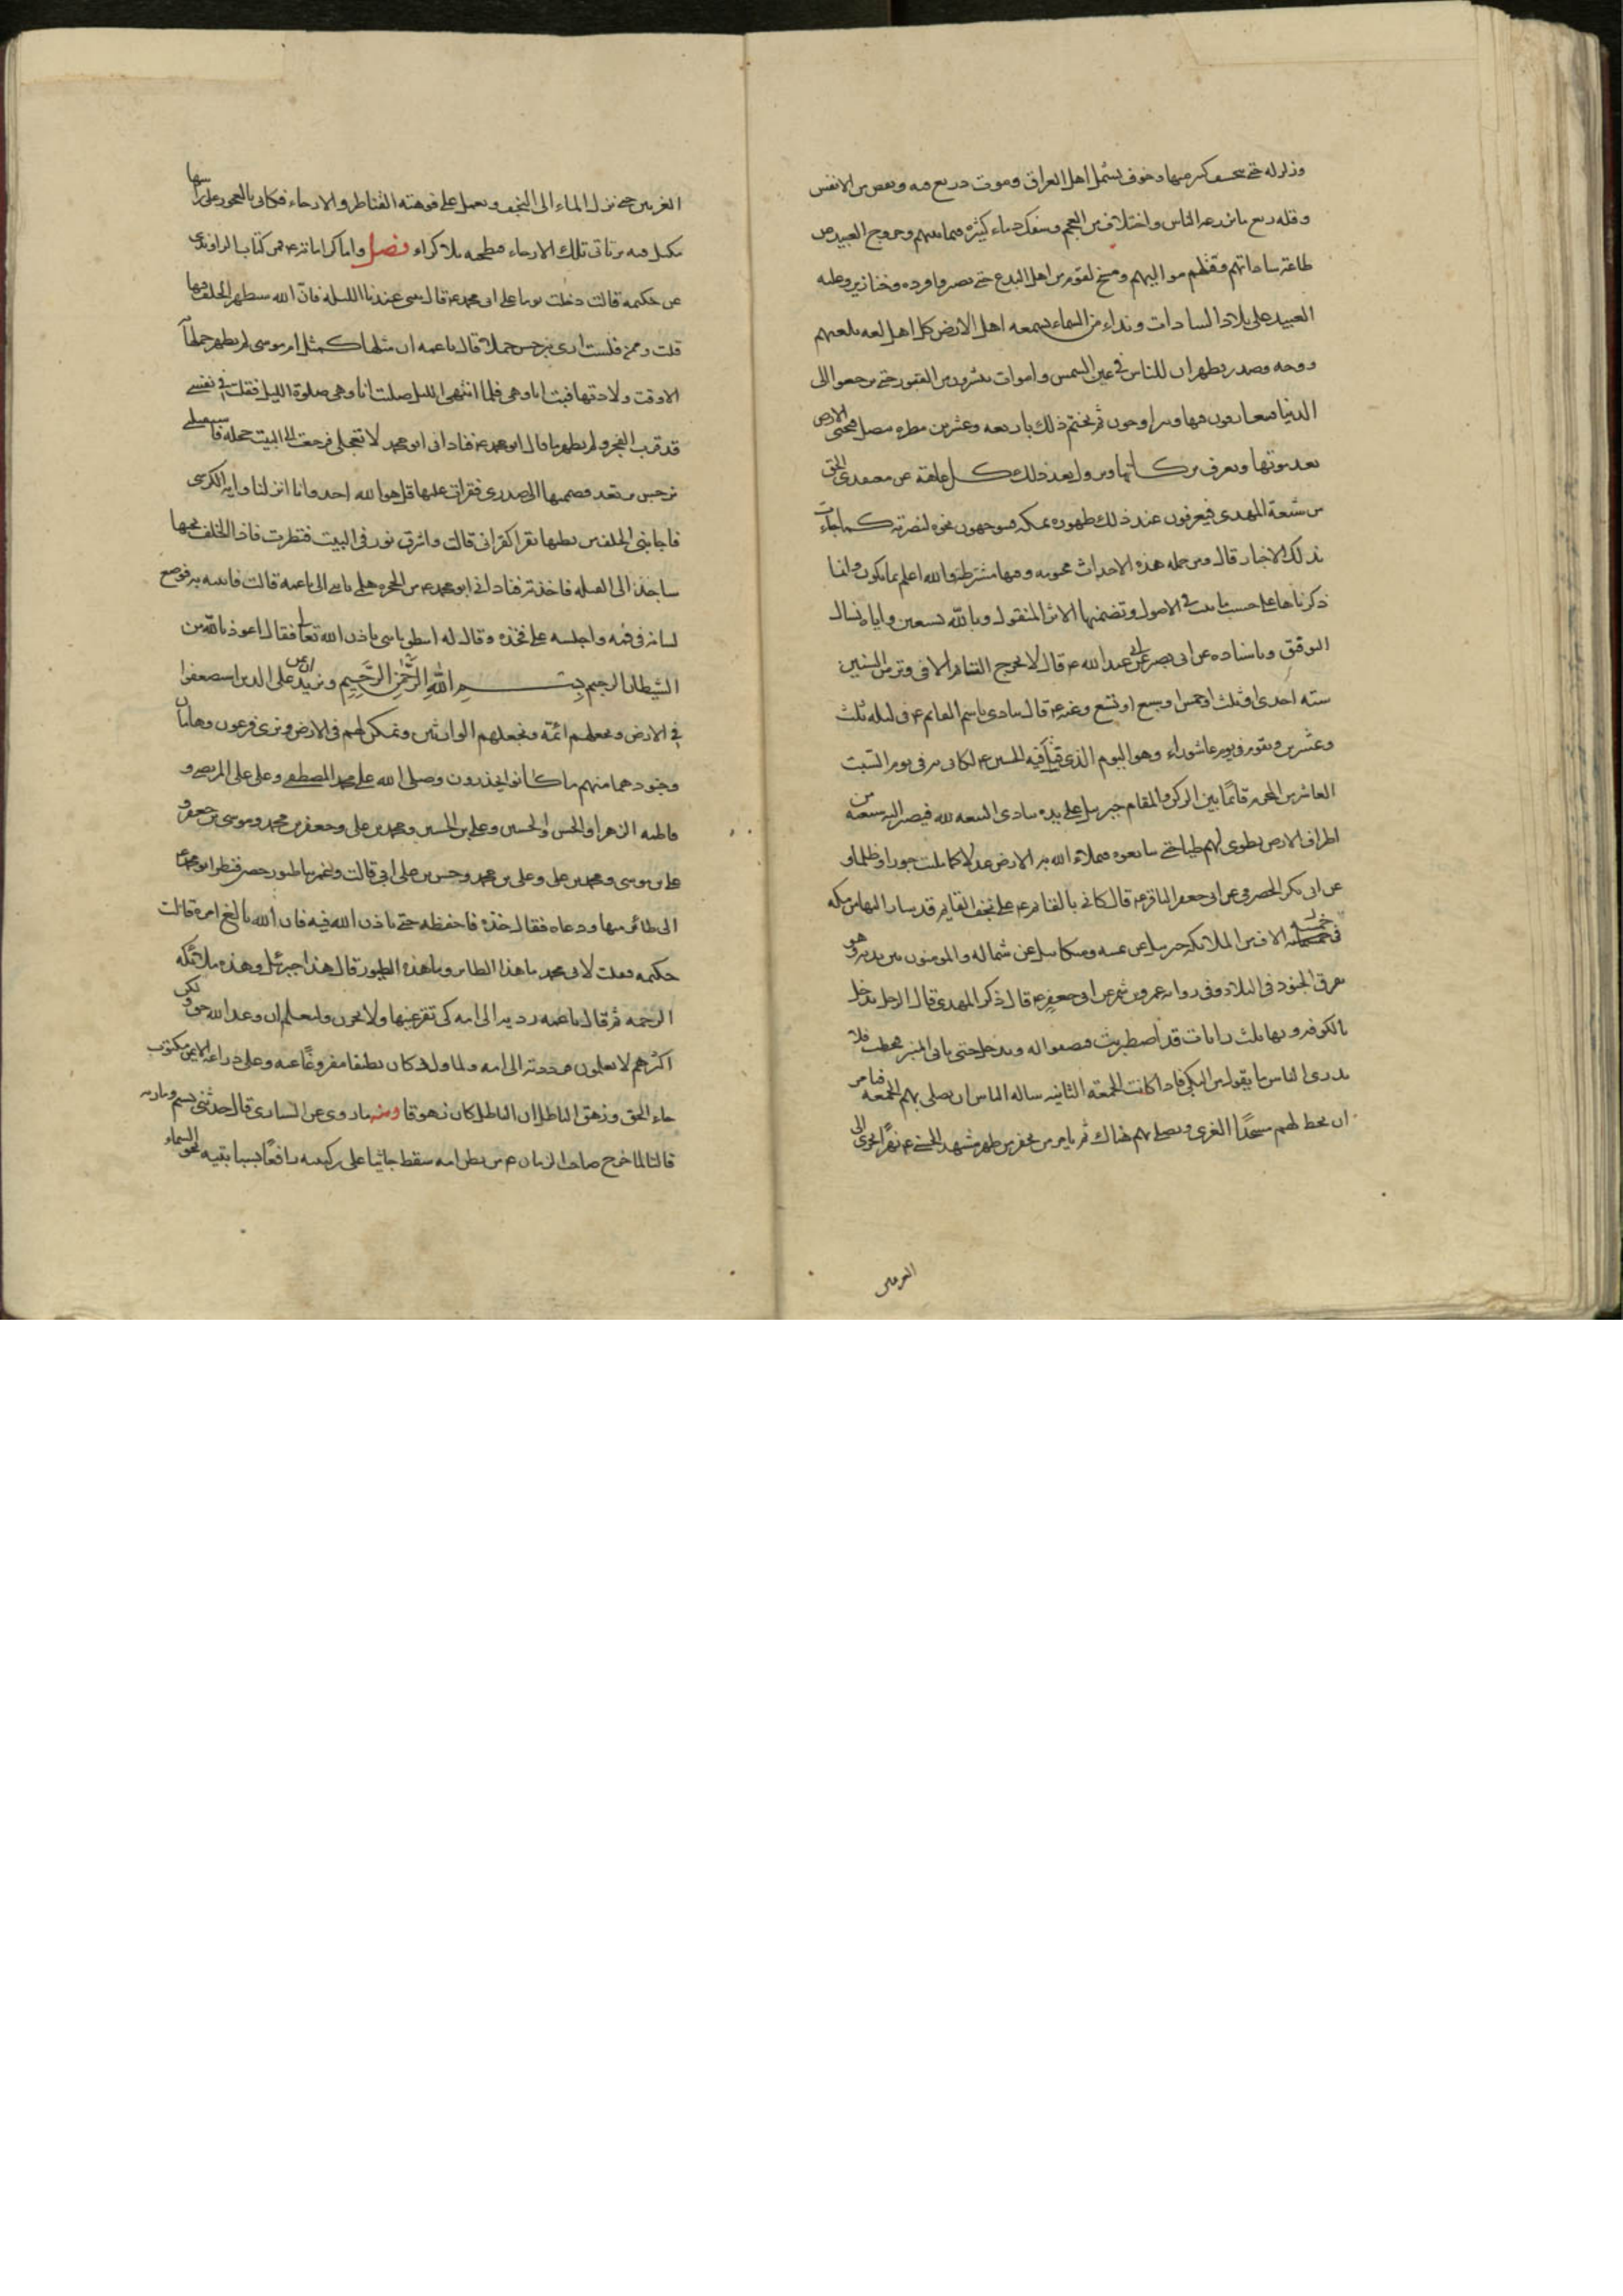 وزلزلة حتى ينخسف كثير منها وخوف يشمل اهل العراق وموت ذريع فيه ونقص من الانفس
وقلة ريع ما يزرعه الناس واختلاف من العجم وسفك دماء كثيرة فيما بينهم وخروج العبيد من
طاعة ساداتهم وقتلهم مواليهم ومسخ لقوم من اهل البدع حتى يصيروا قردة وخنازير وغلبة
العبيد على بلاد السادات ونداء من السماء يسمعه اهل الارض كل اهل لغة بلغتهم
ووجه وصدر يظهران للناس في عين الشمس واموات ينشرون من القبور حتى يرجعوا الى
الدنيا فيتعارفون فيها ويتزاورون ثم يختم ذلك باربعة وعشرين مطرة يتصل فتحيى الارض
بعد موتها ويعرف بركاتها ويزول بعد ذلك كل عاهة عن معتقدي الحق
من شيعة المهدي فيعرفون عند ذلك ظهوره بمكة فيتوجهون نحوه لنصرته كما جاءت
بذلك الاخبار قال ومن جملة هذه الاحداث محتومة ومنها مشترطة والله اعلم بما يكون وانما
ذكرناها على حسب ما ثبت في الاصول وتضمنها الاثر المنقول وبالله نستعين واياه نسال
التوفيق وباسناده عن ابي بصير عن ابي عبد الله ع قال لا يخرج القائم الا في وتر من السنين
سنة احدى او ثلث او خمس او سبع او تسع وعنه ع قال ينادى باسم القايم ع في ليلة ثلث
وعشرين ويقوم في يوم عاشوراء وهو اليوم الذي قتل فيه الحسين ع لكاني به في يوم السبت
العاشر من المحرم قائما بين الركن والمقام جبرئيل على يده ينادي البيعة لله فيصير اليه شيعته من
اطراف الارض تطوى لهم طيا حتى يبايعوه فيملأ الله به الارض عدلا كما ملئت جورا وظلما و
عن ابي بكر الحضرمي عن ابي جعفر الباقر ع قال كاني بالقائم ع على نجف القايم قد سار اليها من مكة
في خمسة الاف من الملائكة جبرئيل عن يمينه وميكائيل عن شماله والمومنون بين يديه وهو
يفرق الجنود في البلاد وفي رواية عمرو بن شمر عن ابي جعفر ع قال ذكر المهدي قال الرجل يدخل
بالكوفة وبها ثلث رايات قد اضطربت فتصفوا له ويدخل حتى ياتي المنبر فيخطب فلا
يدري الناس ما يقول من البكي فاذا كانت الجمعة الثانية ساله الناس ان يصلى بهم الجمعة فيامر
ان يخط لهم مسجدا الغري ويصلى بهم هناك ثم يامر من يحفر من ظهر مشهد الحسين ع نهرا يجري الى
الغريين
الغريين حتى ينزل الماء الى النجف ويعمل على فوهته القناطر والارحاء فكاني بالعجوز على راسها
مكتل فيه بر تاتي تلك الارحاء فتطحنه بلا كراء فصل واما كراماته ع فمن كتاب الراوندي
عن حكيمة قالت دخلت يوما على ابي محمد ع قال بيتي عندنا الليلة فان الله سيظهر الخلف فيها
قلت وممن فلست ارى بنرجس حملا قال يا عمه ان مثلها كمثل ام موسى لم يظهر حملها
الا وقت ولادتها فبت انا وهي فلما انتهى الليل صليت انا وهي صلوة الليل فقلت في نفسي
قد قرب الفجر ولم يظهر ما قال ابو محمد ع فناداني ابو محمد لا تعجلي فرجعت الى البيت خجلة فاستقبلتني
نرجس ترتعد فضممتها الى صدري فقرات عليها قل هو الله احد وانا انزلنا واية الكرسي
فاجابني الخلف من بطنها يقرا كقراتي قالت واشرق نور في البيت فنظرت فاذا الخلف تحتها
ساجدا الى القبلة فاخذته فناداني ابو محمد ع من الحجرة هلمي بابني الي يا عمه قالت فاتيته به فوضع
لسانه في فمه واجلسه على فخذه وقال له انطق يا بني باذن الله تعالى فقال اعوذ بالله من
الشيطان الرجيم بسم الله الرحمن الرحيم ونريد ان نمن على الذين استضعفوا
في الارض ونجعلهم ائمة ونجعلهم الوارثين ونمكن لهم في الارض ونري فرعون وهامان
وجنودهما منهم ما كانوا يحذرون وصلى الله على محمد المصطفى وعلي على المرتضى و
فاطمة الزهرا والحسن والحسين وعلي بن الحسين ومحمد بن علي وجعفر بن محمد وموسى بن جعفر و
علي بن موسى ومحمد بن علي وعلي بن محمد وحسن بن علي ابي قالت وغمرتنا طيور خضر فنظر ابو محمد ع
الى طائر منها ودعاه فقال خذه فاحفظه حتى ياذن الله فيه فان الله بالغ امره قالت
حكيمه فقلت لابي محمد ما هذا الطاير وما هذه الطيور قال هذا جبرئيل وهذه ملائكة
الرحمة ثم قال يا عمه رديه الى امه كي تقر عينها ولا تحزن ولتعلم ان وعد الله حق ولكن
اكثرهم لا يعلمون فرددته الى امه ولما ولد كان نظيفا مفروغا عنه وعلى ذراعه الايمن مكتوب
جاء الحق وزهق الباطل ان الباطل كان زهوقا ومنه ما روي عن السياري قال حدثتني نسيم ومارية
قالتا لما خرج صاحب الزمان ع من بطن امه سقط جاثيا على ركبتيه رافعا بسبابتيه نحو السماء